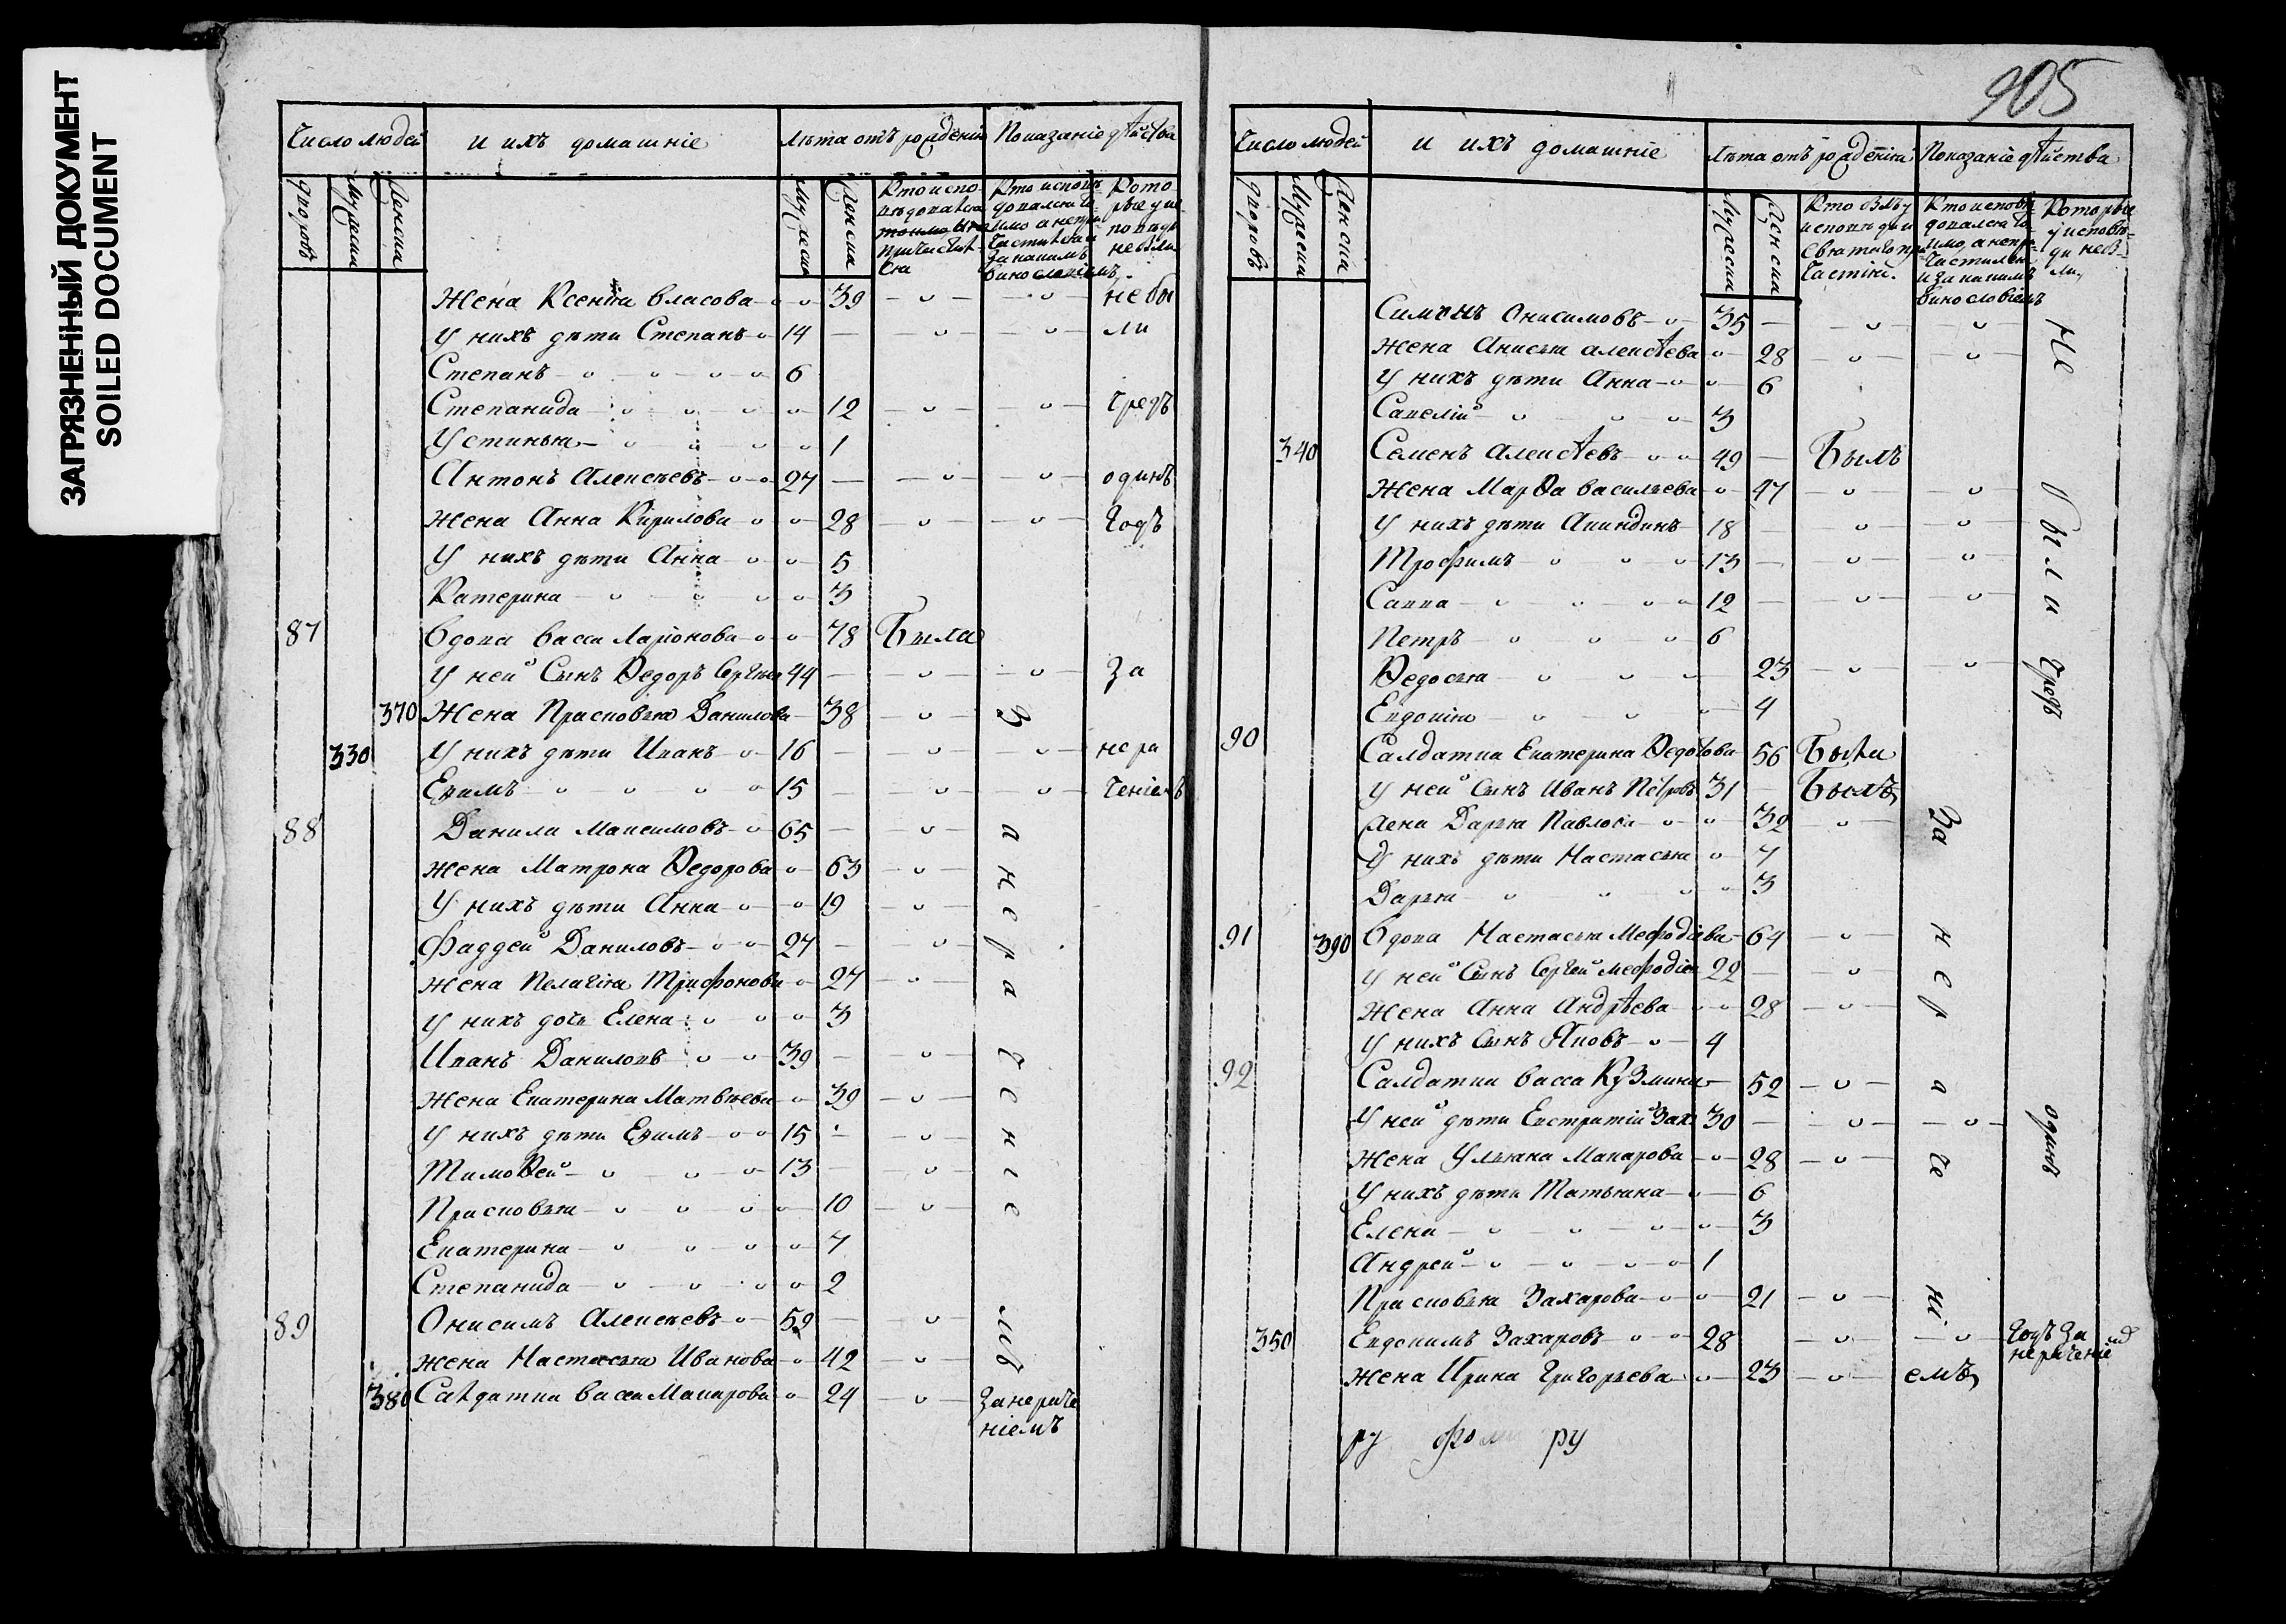 ЗАГРЯЗНЕННЫЙ ДОКУМЕНТ
SOILED DOCUMENT
Число людей и ихъ домашніе Лѣта отъ рожденія Показаніе дѣйства
дворовъ Мужеска Женска Мужеска Женска
Жена Ксенія Власова 39 небы
У нихъ дѣти Степанъ 14 ли
Степанъ 6
Степанида 12 чрезъ
Устинья 1
Антонъ Алексѣевъ 27 одинъ
Жена Анна Кирилова 28 годъ
У нихъ дѣти Анна 5
Катерина 3
87 Вдова Васса Ларіонова 78 Была
У ней Сынъ Ѳедоръ Сергѣев 44 За
370 Жена Прасковья Данилова 38 З
330 У нихъ дѣти Иванъ 16 нера
Еѳимъ 15 ченіемъ
88 Данила Максимовъ 65 а
Жена Матрона Ѳедорова 63 н
У нихъ дѣти Анна 19 е
Фаддей Даниловъ 27 р
Жена Пелагія Трифонова 27 а
У нихъ дочь Елена 3
Иванъ Даниловъ 39 ч
Жена Екатерина Матвѣева 39 е
У нихъ дѣти Еѳимъ 15 н
Тимоѳей 13 і
Прасковья 10 е
Екатерина 7
Степанида 2
89 Онисимъ Алексѣевъ 59 мъ
Жена Настасья Иванова 42
380 Салдатка Васса Макарова 24 Занераче
ніемъ
905
Число людей и ихъ домашніе Лѣта отъ рожденія Показаніе дѣйства
дворовъ Мужеска Женска Мужеска Женска
Симонъ Онисимовъ 35 Не
Жена Анисья Алексѣева 28
У нихъ дѣти Анна 6
Савелій 3
340 Семенъ Алексѣевъ 49 Былъ
Жена Марѳа Васильева 47 были
У нихъ дѣти Акиндинъ 18
Трофимъ 13
Савва 12
Петръ 6
Ѳедосья 23 чрезъ
Евдокія 4
90 Салдатка Екатерина Ѳедотова 56 Была
У ней Сынъ Иванъ Петровъ 31 Былъ
Жена Дарья Павлова 32 За
У нихъ дѣти Настасья 7
Дарья 3
91 390 Вдова Настасья Мефодіева 64 н
У ней Сынъ Сергей Мефодіев 22 е
Жена Анна Андрѣева 28 р
У нихъ Сынъ Яковъ 4
92 Салдатка Васса Кузмина 52 а
У ней дѣти Евстратій Зах 30 одинъ
Жена Ульяна Макарова 28 че
У нихъ дѣти Татьяна 6
Елена 3
Андрей 1
Прасковья Захарова 21 ні
350 Евдокимъ Захаровъ 28 годъ За
нераченіе
Жена Ирина Григорьева 23 емъ
ру ру